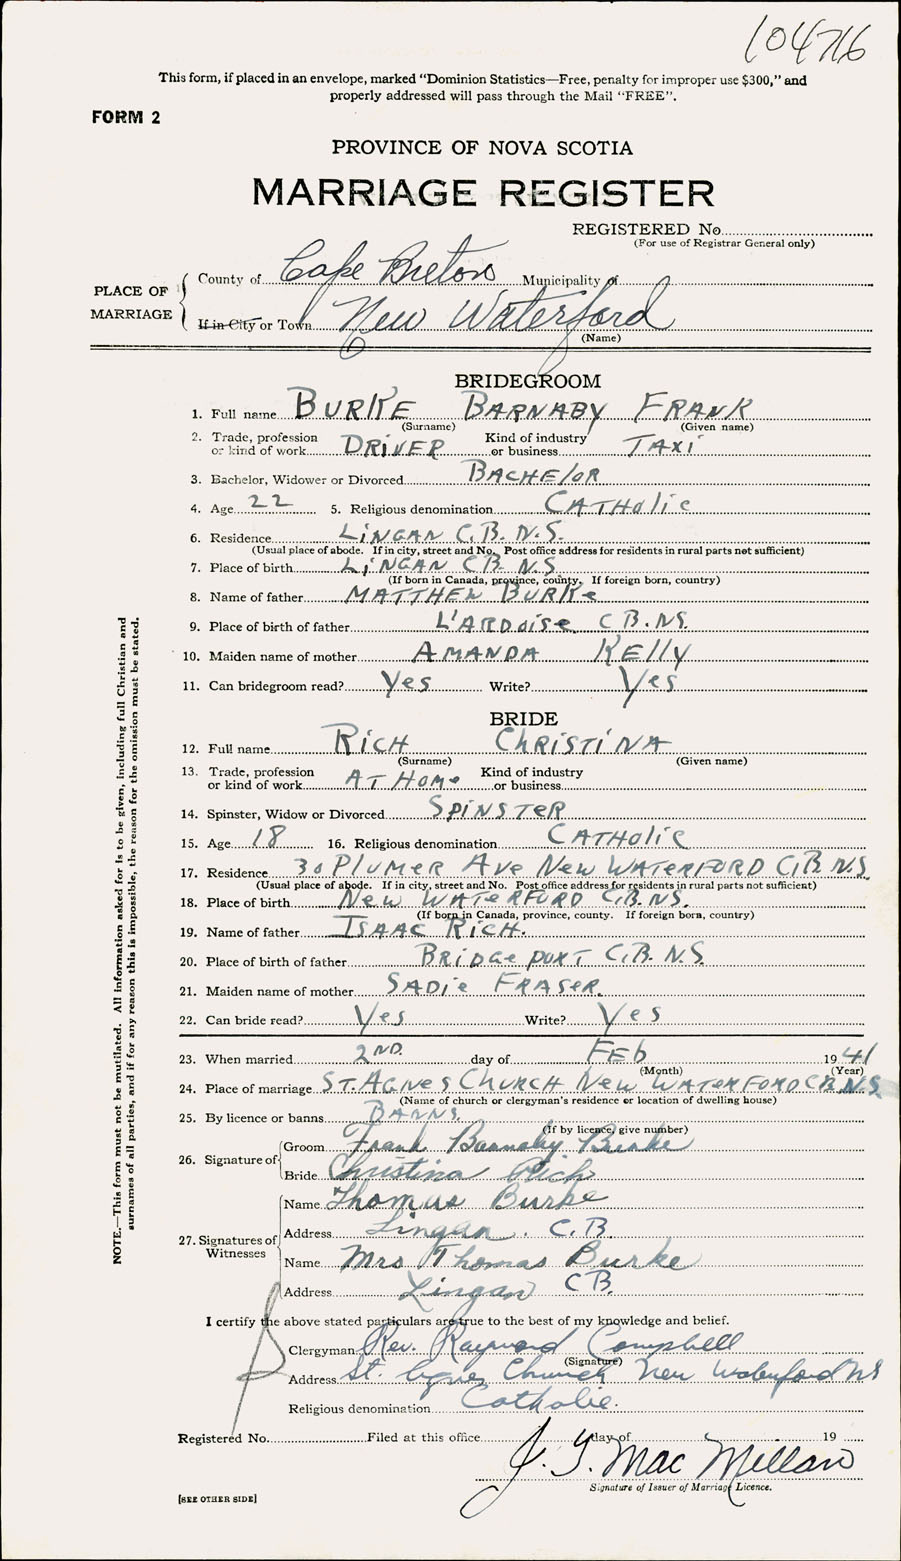 104716
This form, if placed in an envelope, marked "Dominion Statistics—Free, penalty for improper use $300," and
properly addressed will pass through the Mail "FREE".
FORM 2
PROVINCE OF NOVA SCOTIA
MARRIAGE REGISTER
REGISTERED No.
(For use of Registrar General only)
PLACE OF MARRIAGE
County of Cape Breton Municipality of
If in City or Town New Waterford
(Name)
BRIDEGROOM
1. Full name BURKE BARNABY FRANK
(Surname) (Given name)
2. Trade, profession or kind of work DRIVER Kind of industry or business TAXI
3. Bachelor, Widower or Divorced BACHElOR
4. Age 22 5. Religious denomination CATHOlic
6. Residence LINGAN C.B. N.S.
(Usual place of abode. If in city, street and No. Post office address for residents in rural parts not sufficient)
7. Place of birth LINGAN CB. N.S
(If born in Canada, province, county. If foreign born, country)
8. Name of father MATTHEW BURKe
9. Place of birth of father L'ARDoise C B. N.S.
10. Maiden name of mother AMANDA KElly
11. Can bridegroom read? Yes Write? Yes
BRIDE
12. Full name RICH CHRISTINA
(Surname) (Given name)
13. Trade, profession or kind of work AT HOMe Kind of industry or business
14. Spinster, Widow or Divorced SPINSTER
15. Age 18 16. Religious denomination CATHOlic
17. Residence 30 PlUMER AVe NeW WATERFORD C.B. N.S.
(Usual place of abode. If in city, street and No. Post office address for residents in rural parts not sufficient)
18. Place of birth NeW WATeRFORD C.B. N.S.
(If born in Canada, province, county. If foreign born, country)
19. Name of father ISAAC RICH.
20. Place of birth of father BRIDGePORT C.B. N.S.
21. Maiden name of mother SADie FRASeR.
22. Can bride read? Yes Write? Yes
23. When married 2ND. day of FEb 1941
(Month) (Year)
24. Place of marriage ST. AGNeS CHURCH NeW WATERFORD C.B. N.S.
(Name of church or clergyman's residence or location of dwelling house)
25. By licence or banns BANNS.
(If by licence, give number)
26. Signature of
Groom Frank Barnaby Burke
Bride Christina Rich
27. Signatures of Witnesses
Name Thomas Burke
Address Lingan. C.B
Name Mrs Thomas Burke
Address Lingan CB.
I certify the above stated particulars are true to the best of my knowledge and belief.
Clergyman Rev. Raymond Campbell
(Signature)
Address St. Agnes Church New Waterford NS
Religious denomination Catholic.
Registered No. Filed at this office day of 19
J. G. MacMillan
Signature of Issuer of Marriage Licence.
[SEE OTHER SIDE]
NOTE.—This form must not be mutilated. All information asked for is to be given, including full Christian and
surnames of all parties, and if for any reason this is impossible, the reason for the omission must be stated.